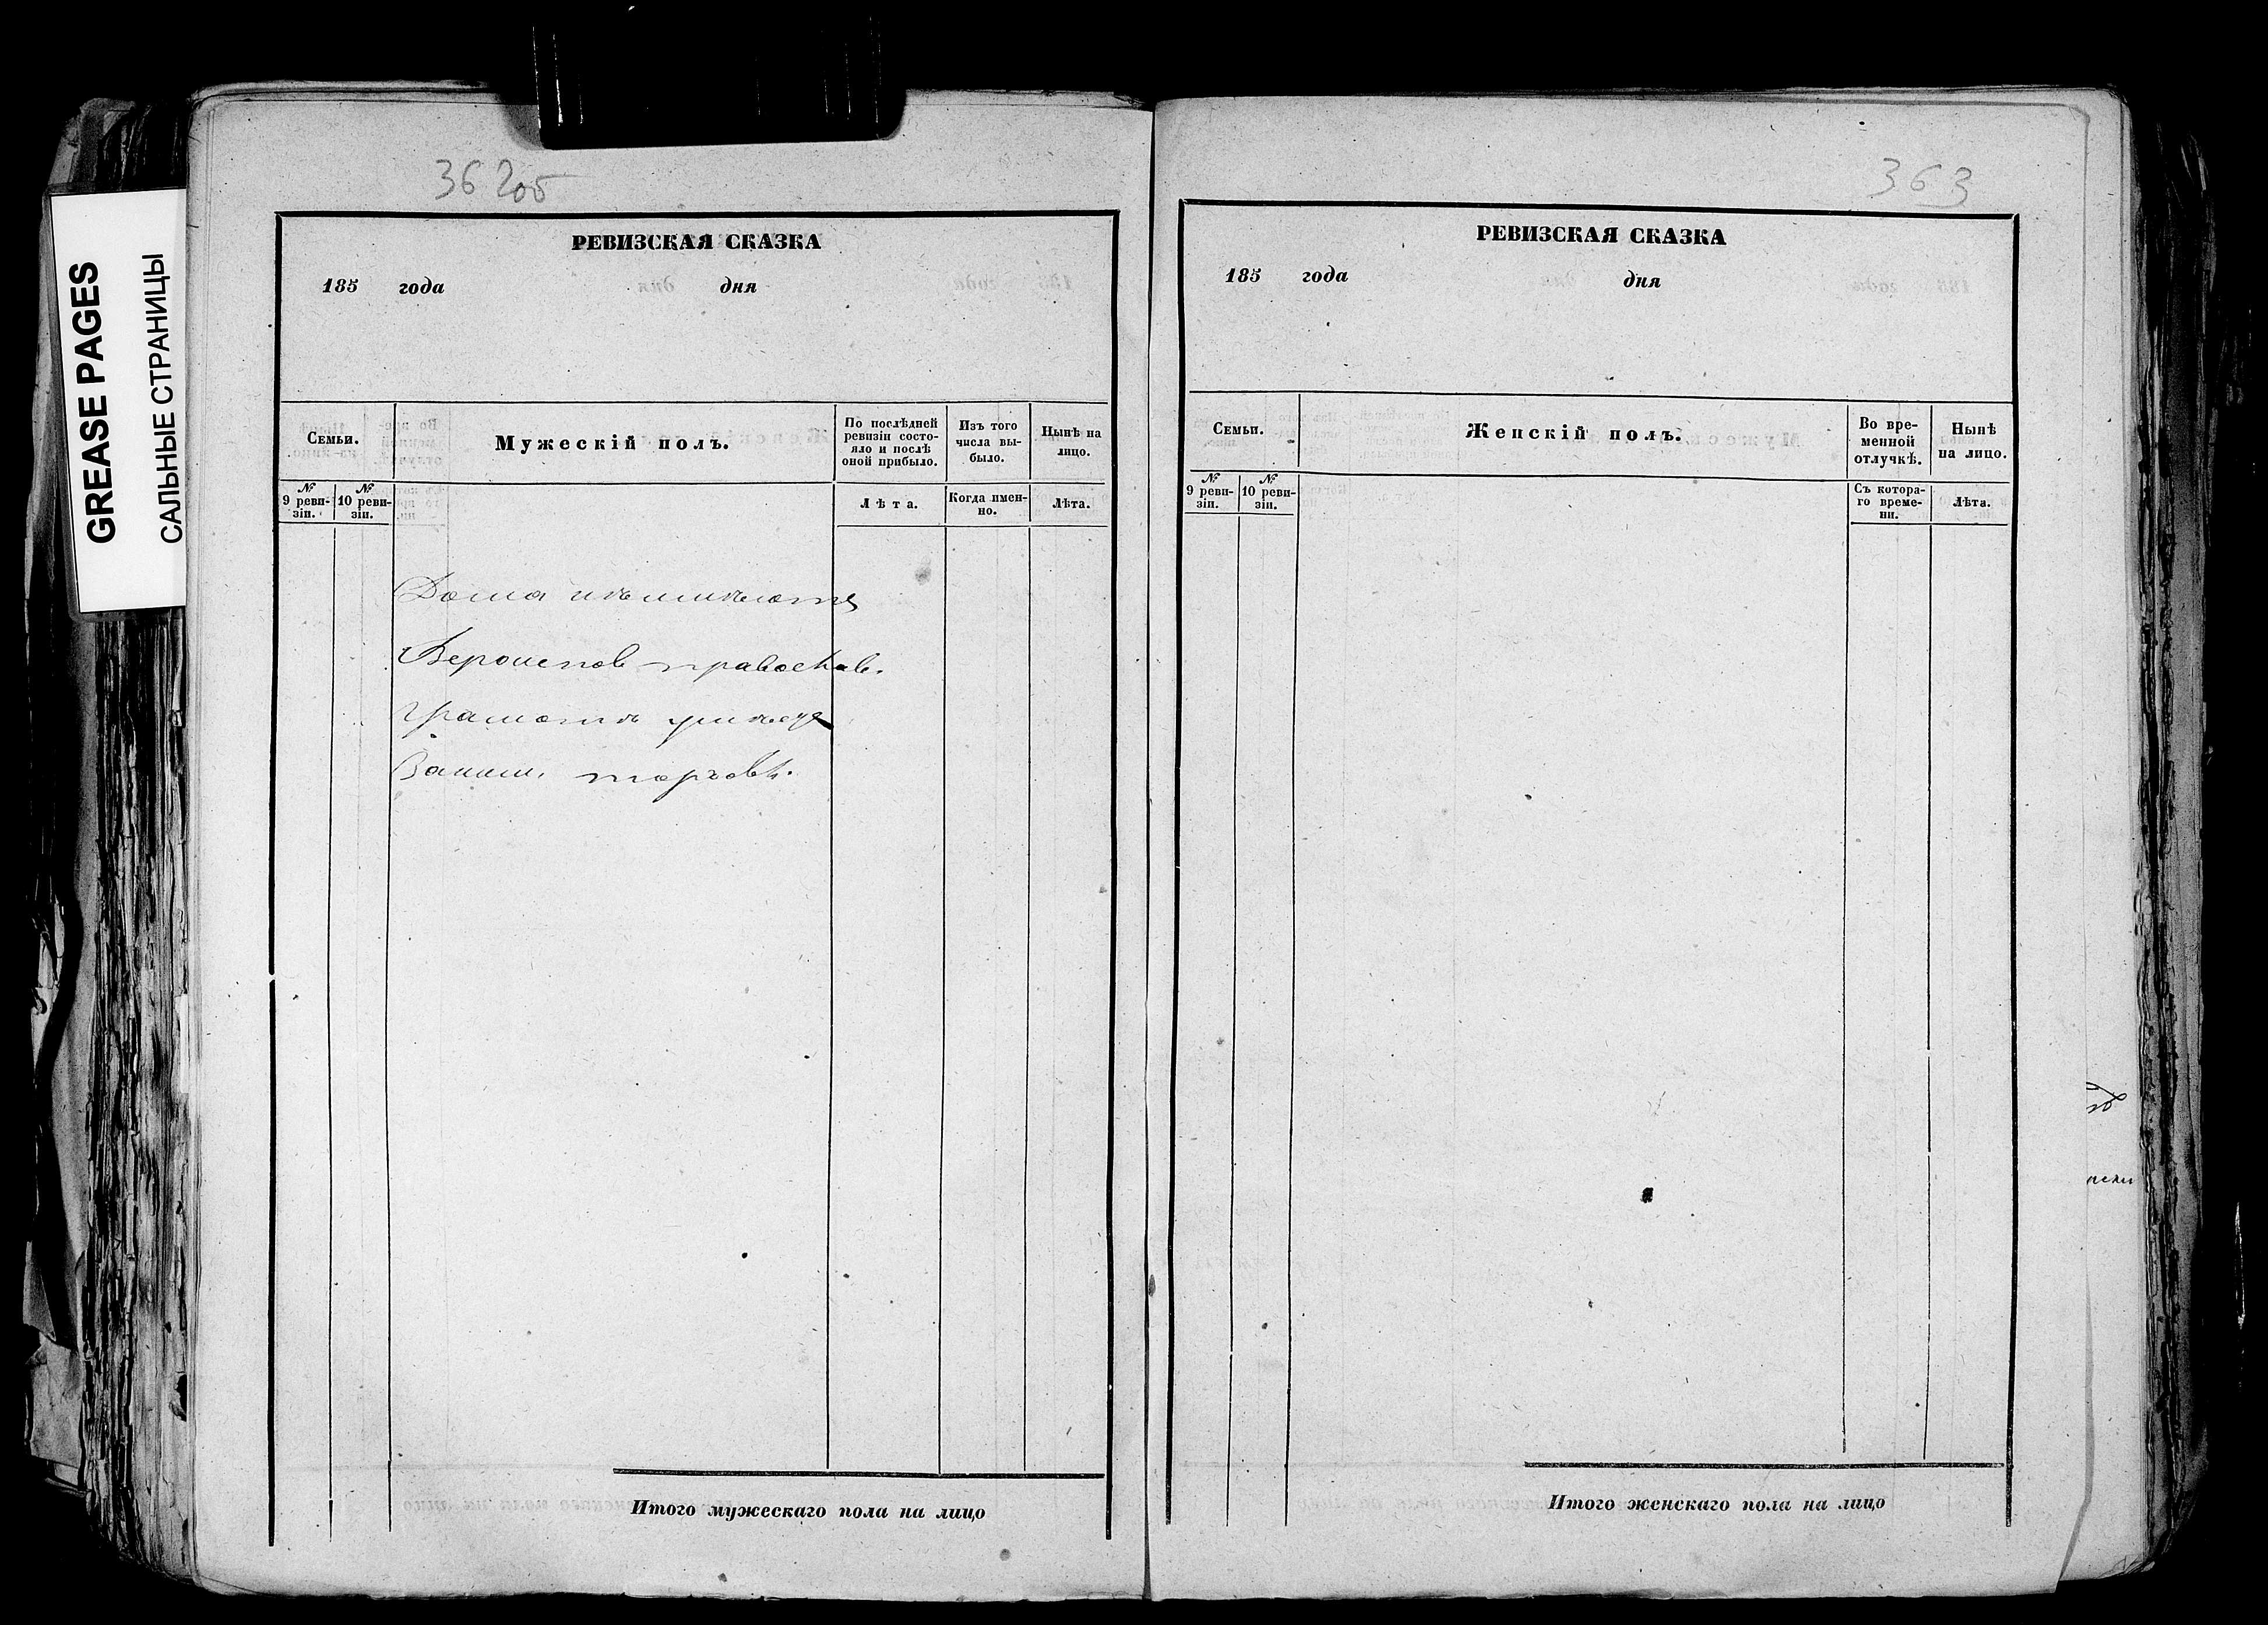 GREASE PAGES
САЛЬНЫЕ СТРАНИЦЫ
362об
РЕВИЗСКАЯ СКАЗКА
185 года дня
Семьи.
Мужескій полъ.
По послѣдней
ревизіи состо-
яло и послѣ
оной прибыло.
Изъ того
числа вы-
было.
Нынѣ на
лицо.
№
9 реви-
зіи.
№
10 реви-
зіи.
Лѣта.
Когда имен-
но.
Лѣта.
Дома
Вероиспов православ.
Грамотѣ умѣетъ
Заним. торговл.
Итого мужескаго пола на лицо
363
РЕВИЗСКАЯ СКАЗКА
185 года дня
Семьи.
Женскій полъ.
Во вре-
менной
отлучкѣ.
Нынѣ
на лицо.
№
9 реви-
зіи.
№
10 реви-
зіи.
Съ котора-
го време-
ни.
Лѣта.
Итого женскаго пола на лицо